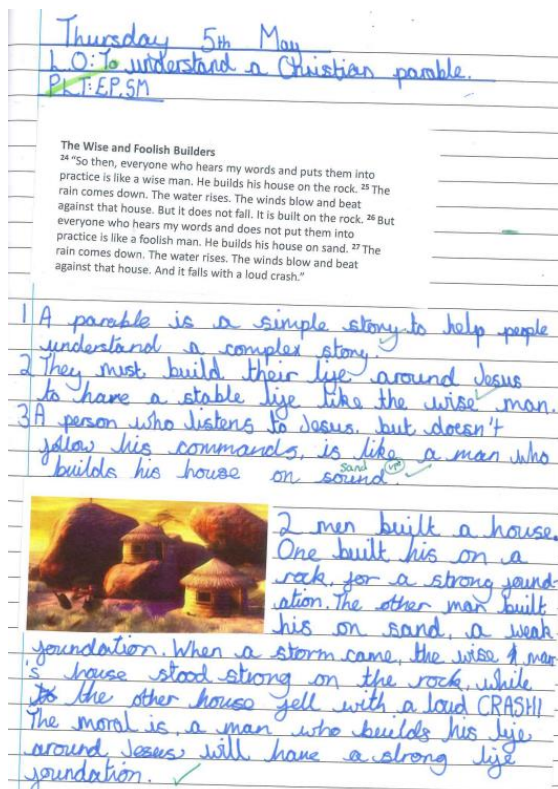 Thursday 5th May
L.O: To understand a Christian parable.
PLT: EP, SM
The Wise and Foolish Builders
24 "So then, everyone who hears my words and puts them into
practice is like a wise man. He builds his house on the rock. 25 The
rain comes down. The water rises. The winds blow and beat
against that house. But it does not fall. It is built on the rock. 26 But
everyone who hears my words and does not put them into
practice is like a foolish man. He builds his house on sand. 27 The
rain comes down. The water rises. The winds blow and beat
against that house. And it falls with a loud crash."
1 A parable is a simple story to help people
understand a complex story.
2 They must build their life around Jesus
to have a stable life like the wise man.
3 A person who listens to Jesus, but doesn't
follow his commands, is like a man who
sand
builds his house on sound.
2 men built a house.
One built his on a
rock, for a strong found-
ation. The other man built
his on sand, a weak
foundation. When a storm came, the wise man
's house stood strong on the rock, while
the other house fell with a loud CRASH!
The moral is, a man who builds his life
around Jesus will have a strong life
foundation.